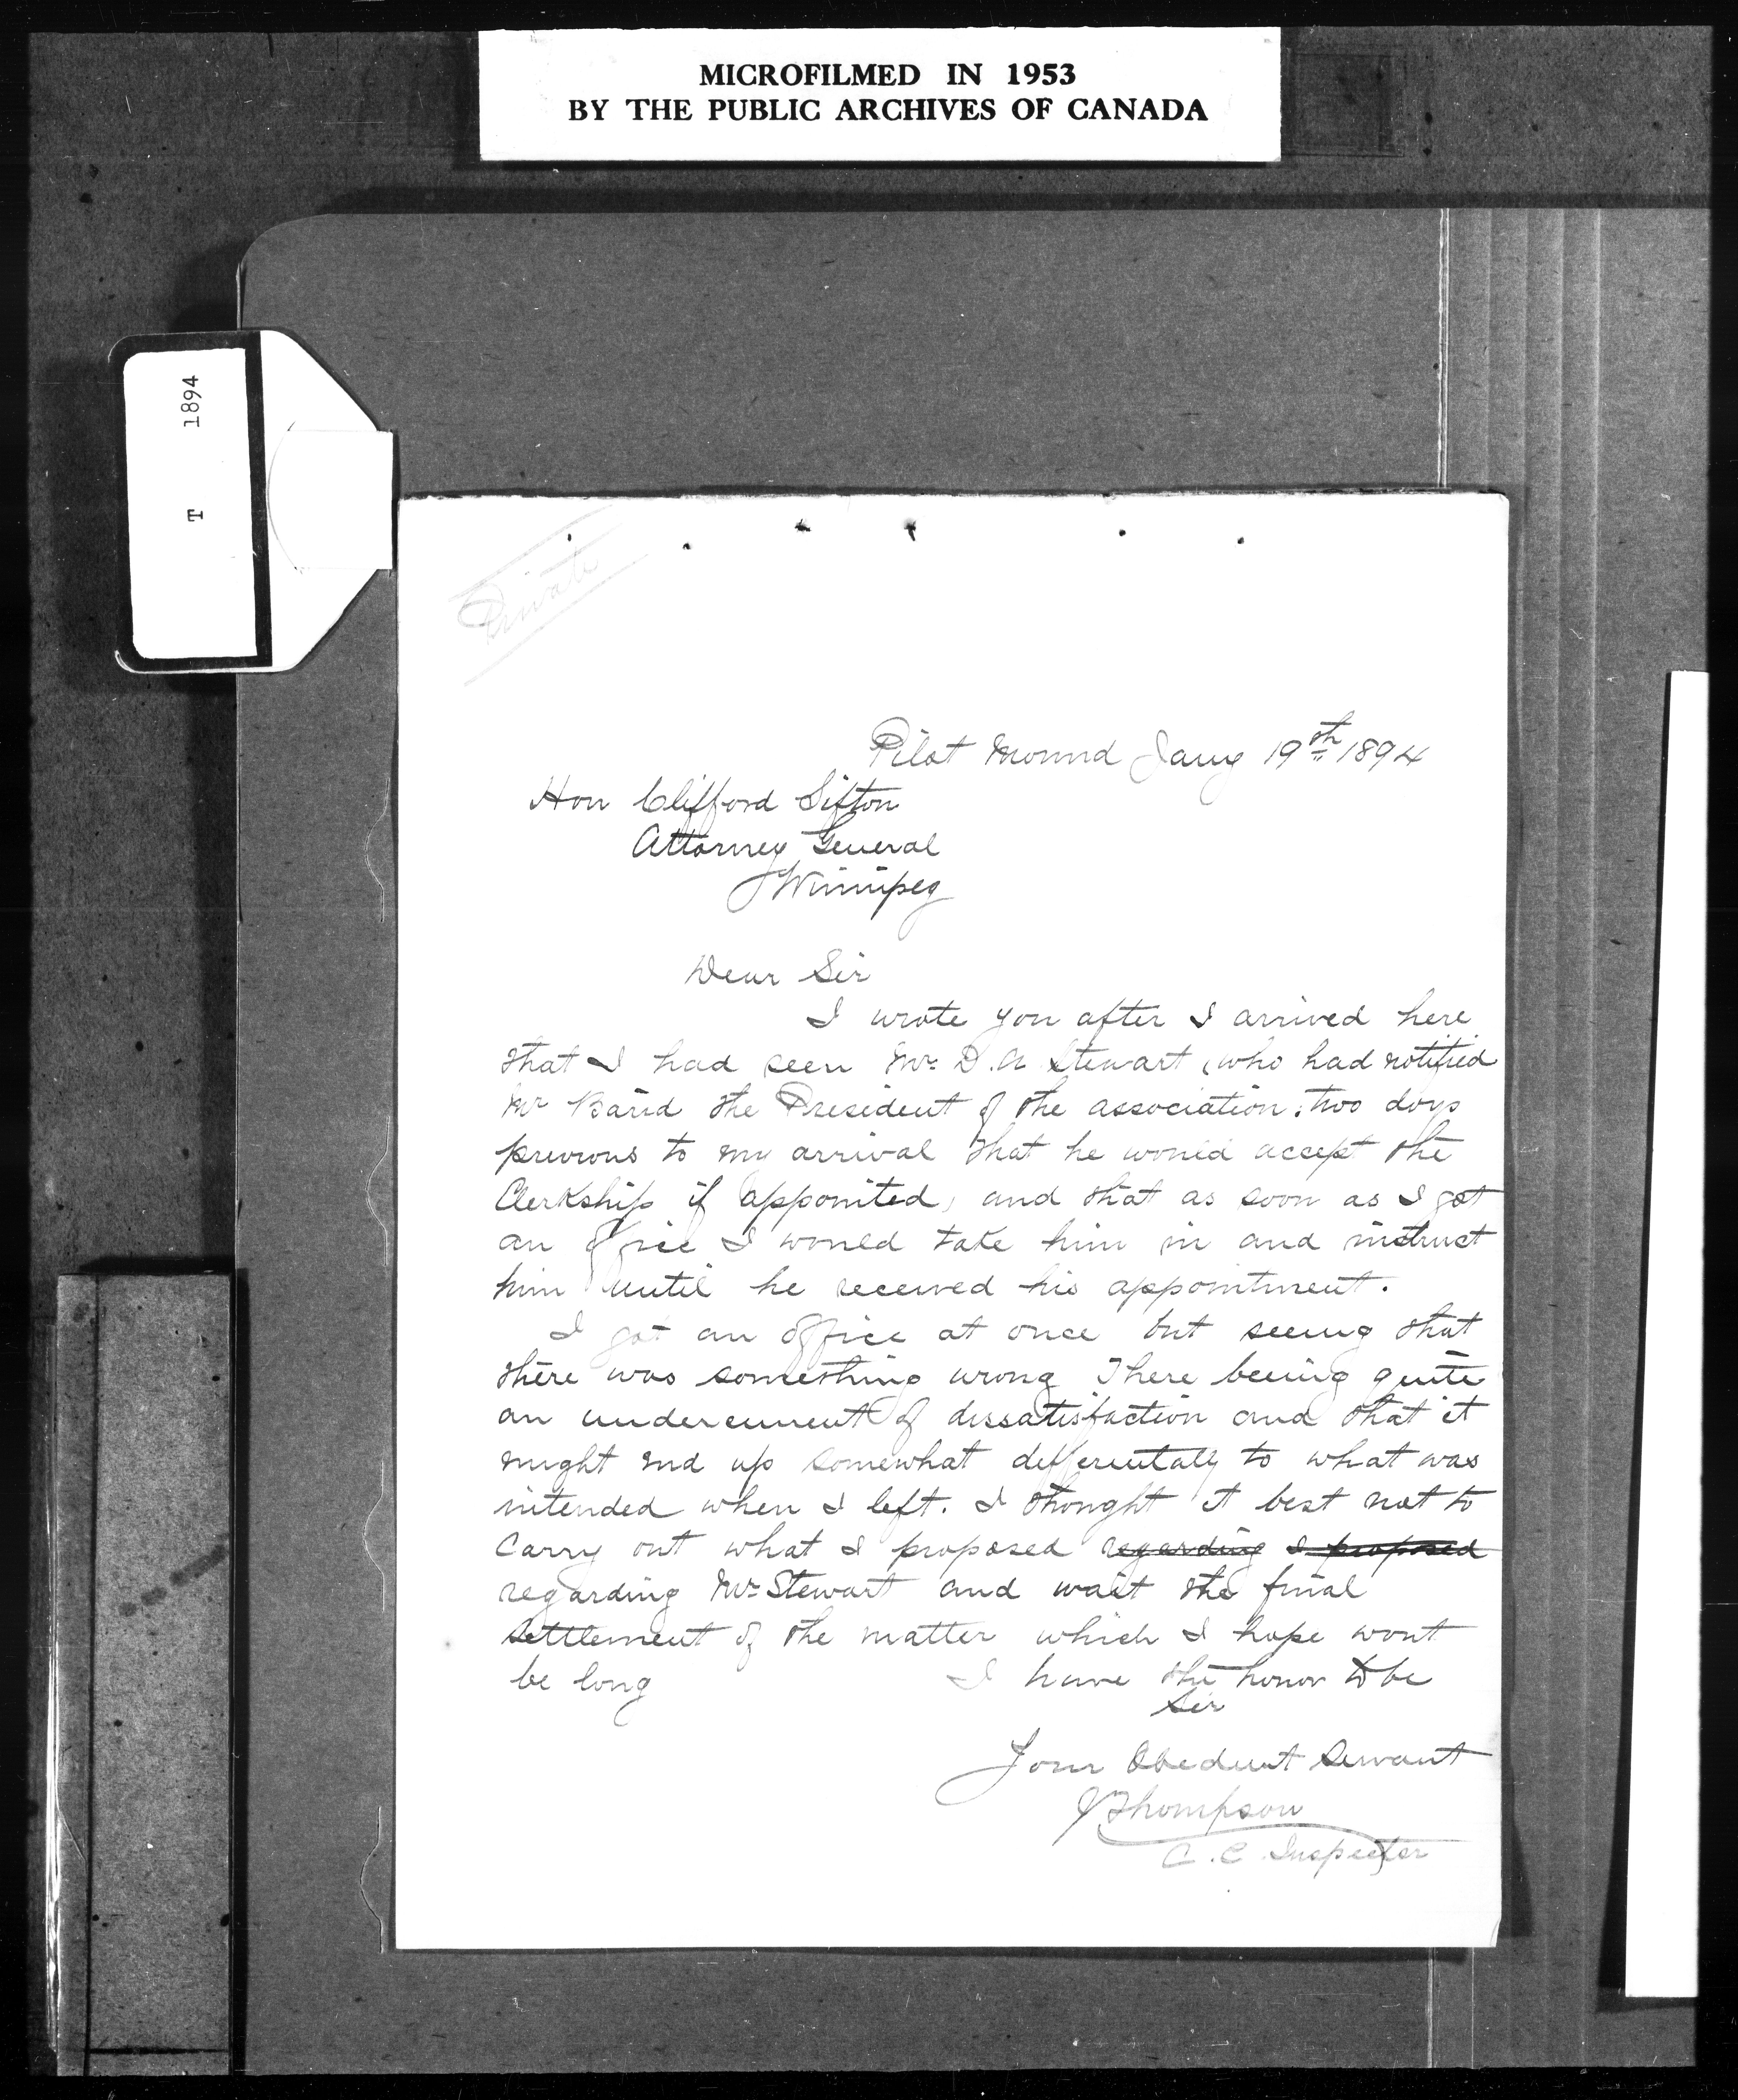 MICROFILMED IN 1953
BY THE PUBLIC ARCHIVES OF CANADA
T 1894
Private
Pilot Mound Jany 19th 1894
Hon Clifford Sifton
Attorney General
Winnipeg
Dear Sir
I wrote you after I arrived here
that I had seen Mr. D. A Stewart, who had notified
Mr Baird the President of the association, two days
previous to my arrival that he would accept the
Clerkship if appointed, and that as soon as I got
an office I would take him in and instruct
him until he received his appointment.
I got an office at once but seeing that
there was something wrong There being quite
an undercurrent of dissatisfaction and that it
might end up somewhat differentaly to what was
intended when I left. I thought it best not to
carry out what I proposed regarding I proposed
regarding Mr Stewart and wait the final
settlement of the matter which I hope wont
be long I have the honor to be
Sir
Your Obedient Servant
J Thompson
C. C. Inspector